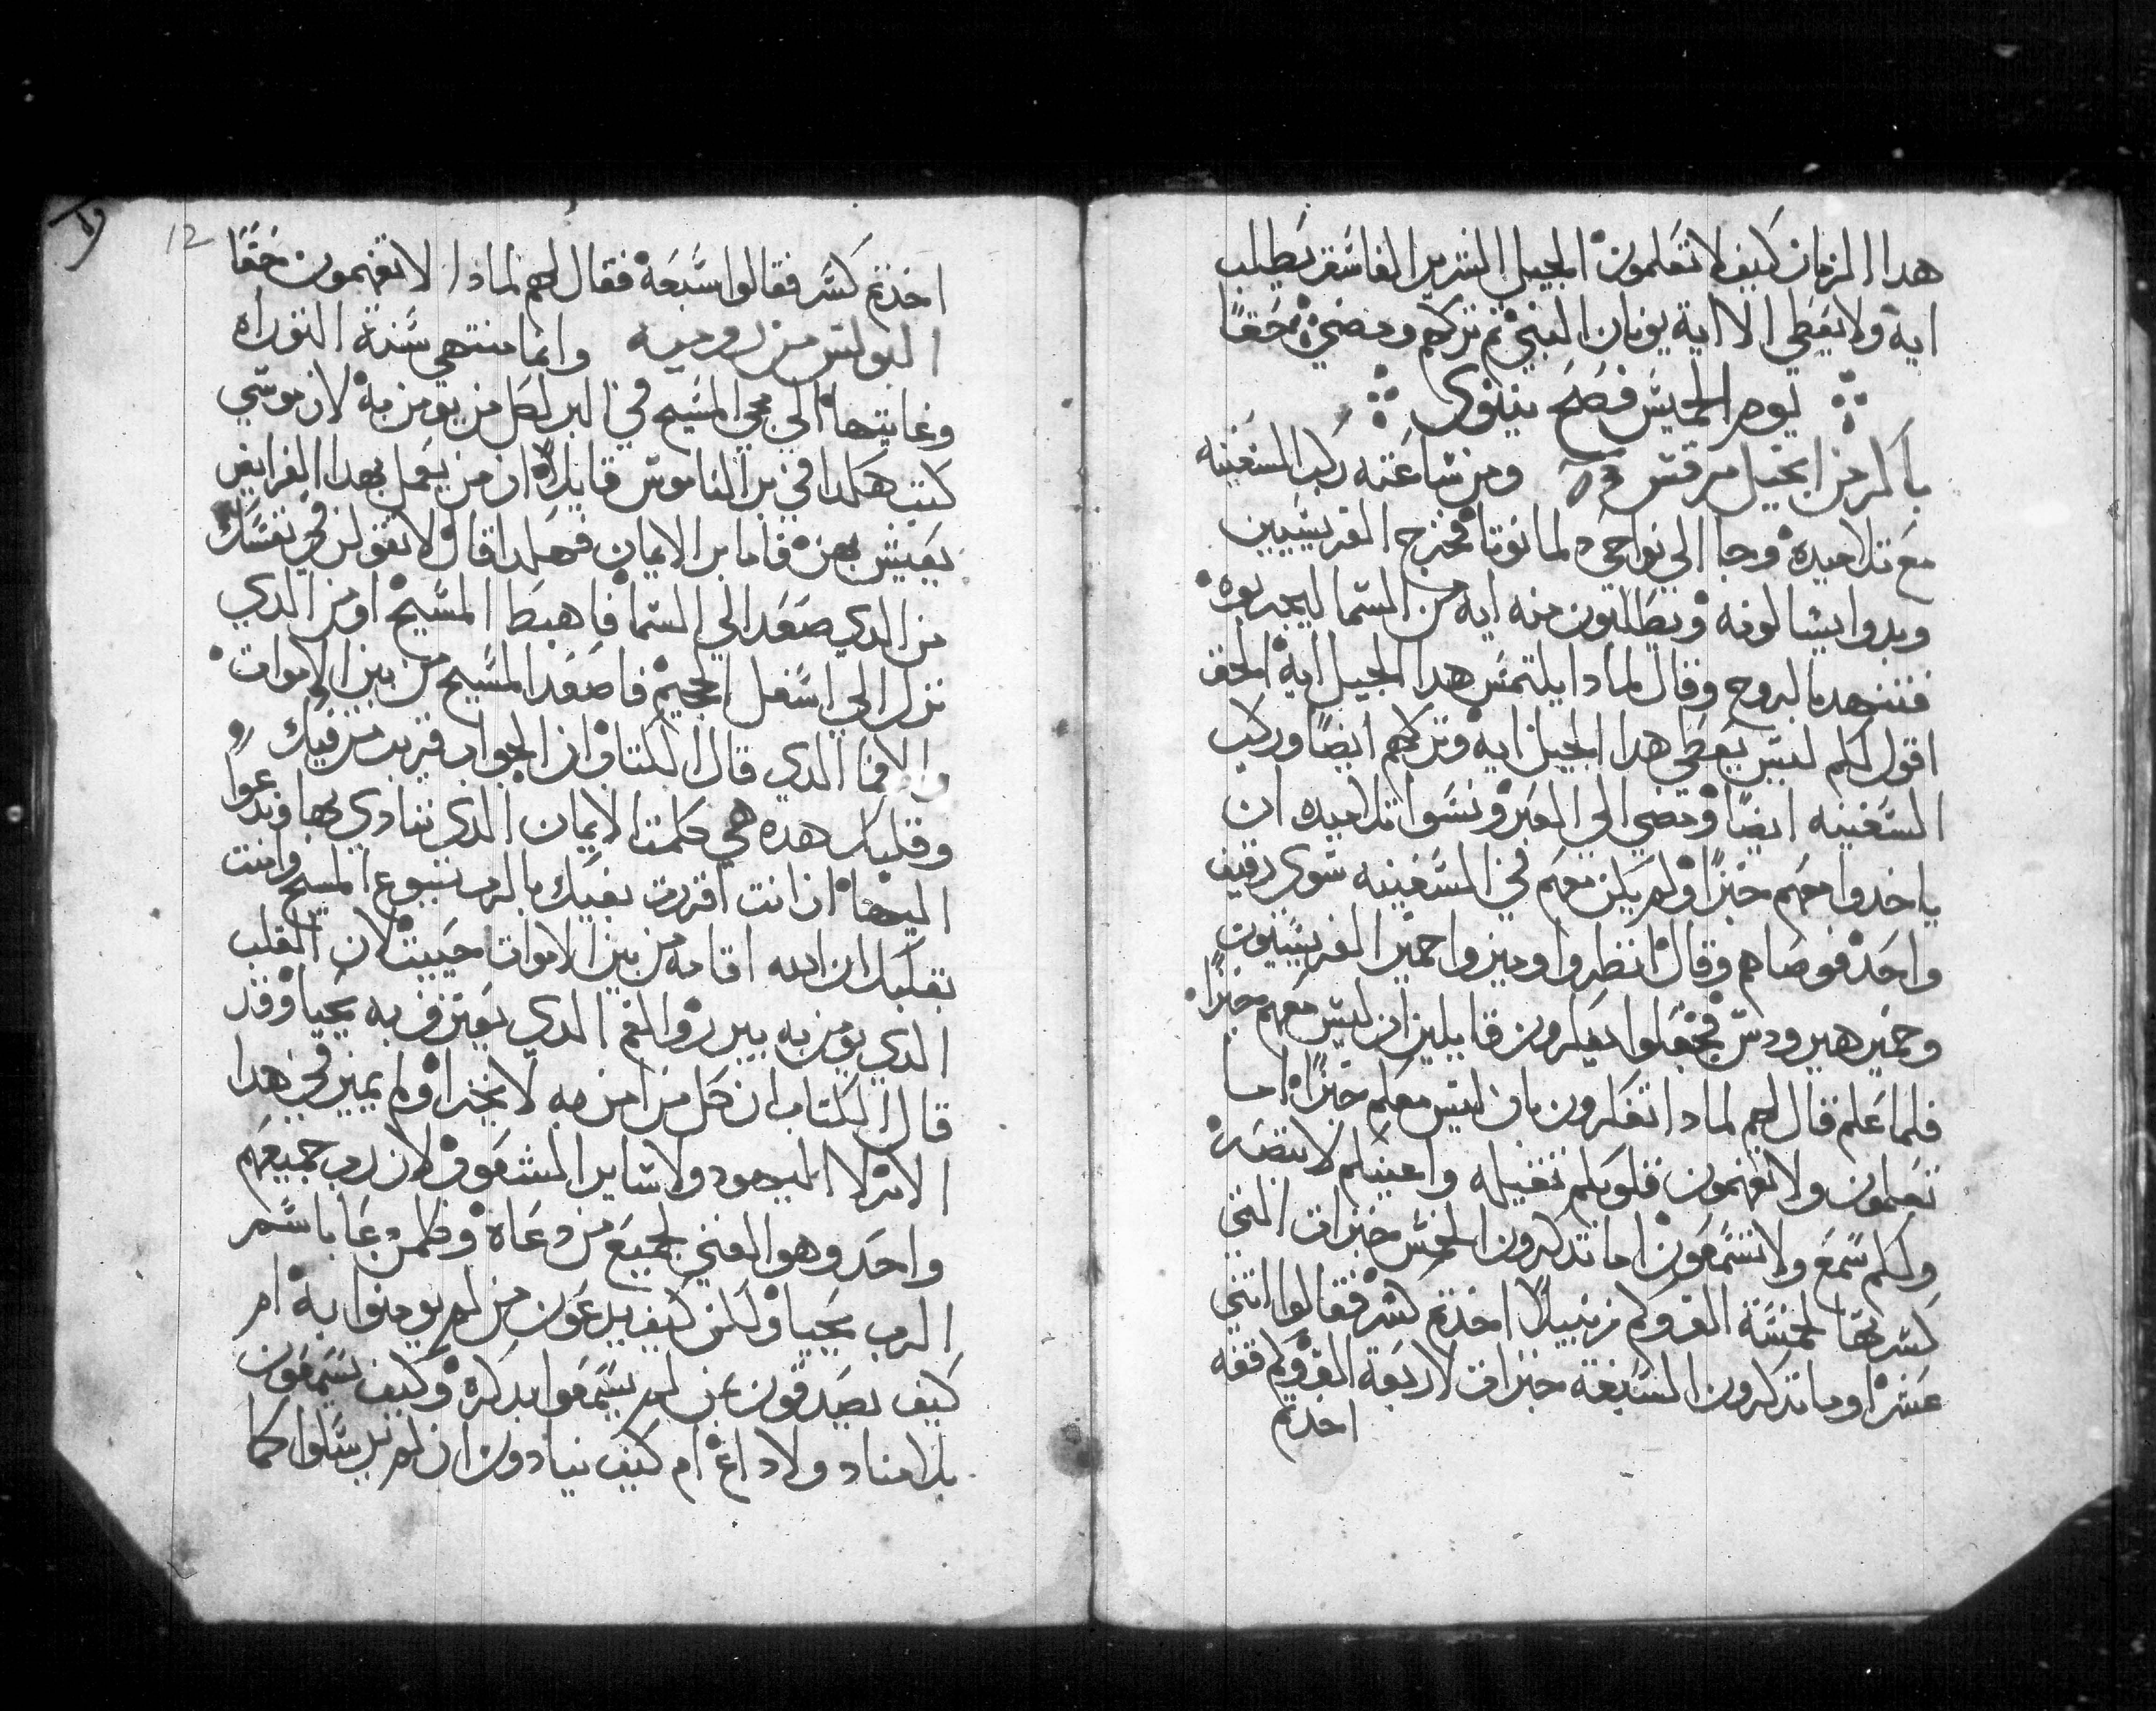 هدا الزمان كيف لا تعلمون الجيل الشرير الفاسق يطلب
ايه ولا يعطي الا اية يونان النبي ثم تركهم ومضي حقا
يوم الخميس فصح نينوى
باكر من انجيل مرقس ومن ساعته ركب السفينه
مع تلاميده وجا الي نواحي دلمانوتا فخرج الفريسيين
وبدوا يسالونه ويطلبون منه ايه من السما ليجربوه
فتنهد بالروح وقال لمادا يلتمس هدا الجيل اية الحق
اقول لكم ليس يعطي هدا الجيل ايه وتركهم ايضا وركب
السفينه ايضا ومضي الي العبر ونسوا تلاميده ان
ياخدوا معهم خبزا ولم يكن معهم في السفينه سوى رغيف
واحد فوصاهم وقال انظروا وميزوا خمير الفريسيون
وخمير هيرودس فجعلوا يفكرون قايلين ان ليس معهم خبزا
فلما علم قال لهم لمادا تفكرون بان ليس معكم خبزا اما
تعلمون ولا تفهمون قلوبكم تقيله واعينكم لا تبصر
ولكم سمع ولا تسمعون اما تدكرون الخمس خبزات التي
كسرتها لخمسة الف وكم زنبيلا اخدتم كسر فقالوا اثني
عشر وما تدكرون السبعة خبزات لاربعة الف وكم قفه
اخدتم
12
اخدتم كسر فقالوا سبعة فقال لهم لمادا لا تفهمون حقا
البولس من روميه وانما منتهي سنة التوراه
وغايتها الي مجي المسيح في البر لكل من يومن به لان موسي
كتب هكدا في بر الناموس قايلا ان من يعمل بهدا الفرايض
يعيش بهن فاما بر الايمان فهكدا قال لا تقولن في نفسك
من الدي صعد الي السما فاهبط المسيح او من الدي
نزل الي اسفل الجحيم فاصعد المسيح من بين الاموات
والا فما الدي قال الكتاب ان الجواب قريب من فيك
وقلبك هده هي كلمت الايمان الدي ننادي بها وندعوا
اليها ان انت اقررت بفيك بالرب يسوع المسيح وامنت
بقلبك ان الله اقامه من بين الاموات حييت لان القلب
الدي يومن به يبرر والفم الدي يعترف به يحيا وقد
قال الكتاب ان كل من امن به لا يخزا ولم يميز في هدا
الامر لا اليهود ولا ساير الشعوب لان رب جميعهم
واحد وهو الغني لجميع من دعاه وكلمن دعا باسم
الرب يحيا ولكن كيف يدعون من لم يومنوا به ام
كيف يصدقون من لم يسمعوا بدكره وكيف يسمعون
بلا مناد ولا داع ام كيف ينادون ان لم يرسلوا كما